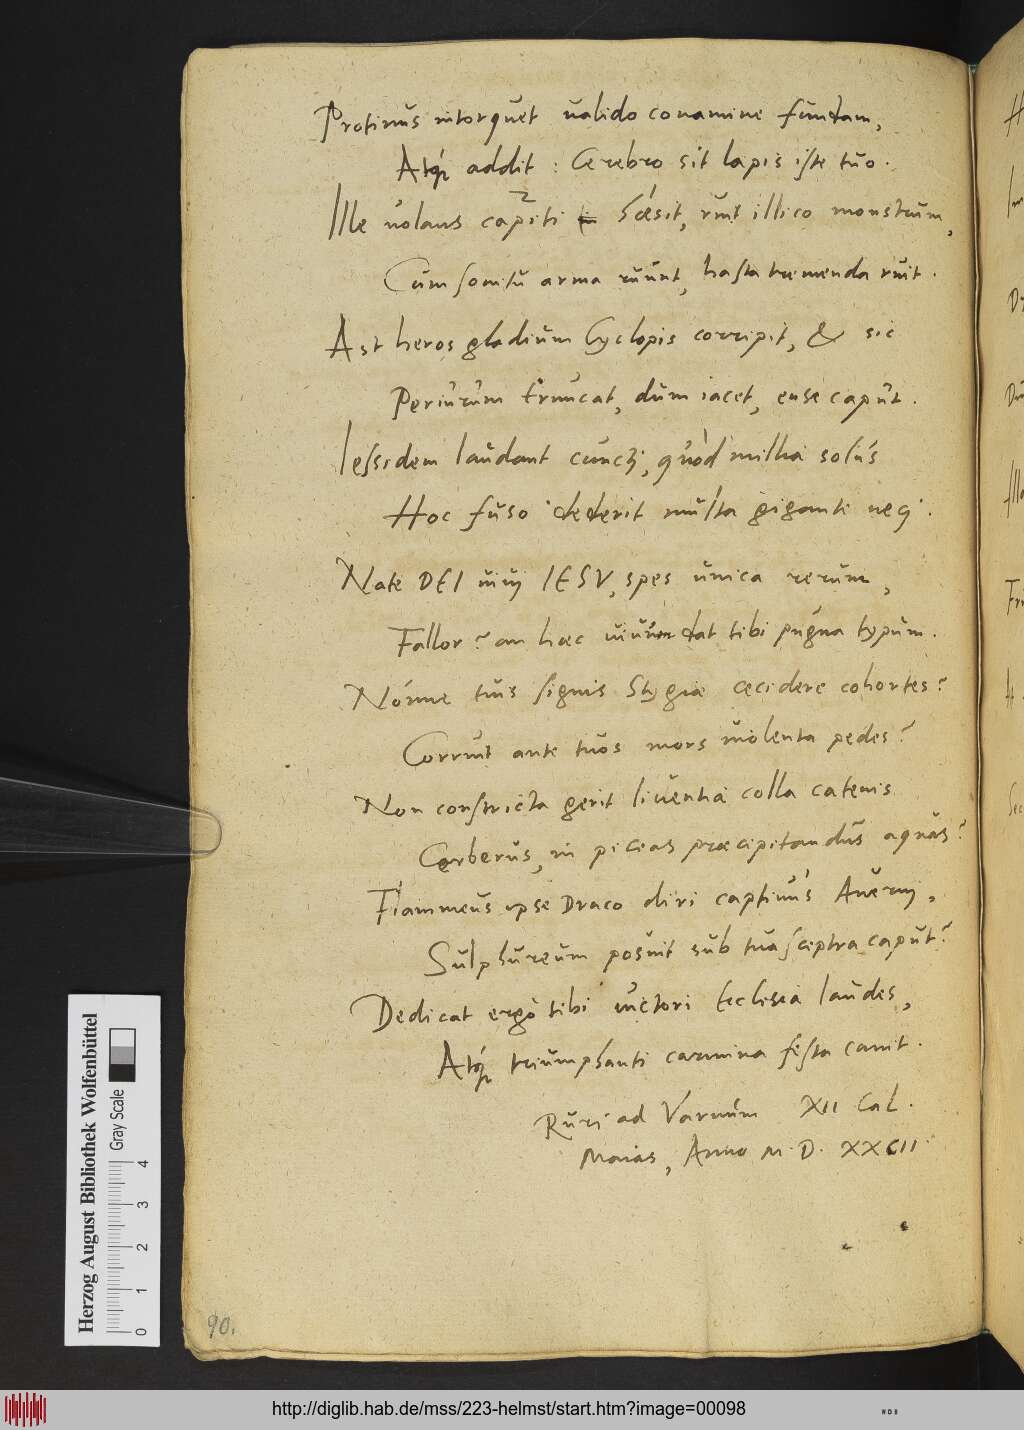 Protinus intorquet ualido conamine fundam,
Atq́; addit: Cerebro sit lapis iste tuo.
Ille uolans capiti hæsit, ruit illico monstrum,
Cum sonitu arma ruunt, hasta tremenda ruit.
Ast heros gladium Cyclopis corripit, & sic
Periurum truncat, dum iacet, ense caput.
Iessidem laudant cuncti, quòd millia solus
Hoc fuso dederit multa giganti neci.
Nate DEI uiui IESV, spes unica rerum,
Fallor? an hæc uiuum dat tibi pugna typum.
Nónne tuis signis Stygiæ cecidere cohortes?
Corruit ante tuos mors uiolenta pedes?
Non constricta gerit liuentia colla catenis
Cerberus, in piceas præcipitandus aquas?
Flammeus ipse Draco diri captiuus Auerni,
Sulphureum posuit sub tua sceptra caput?
Dedicat ergò tibi uictori Ecclesia laudes,
Atq́; triumphanti carmina festa canit.
Ruri ad Varnum XII Cal.
Maias, Anno M. D. XXCII.
90.
Herzog August Bibliothek Wolfenbüttel
Gray Scale
0 1 2 3 4
http://diglib.hab.de/mss/223-helmst/start.htm?image=00098